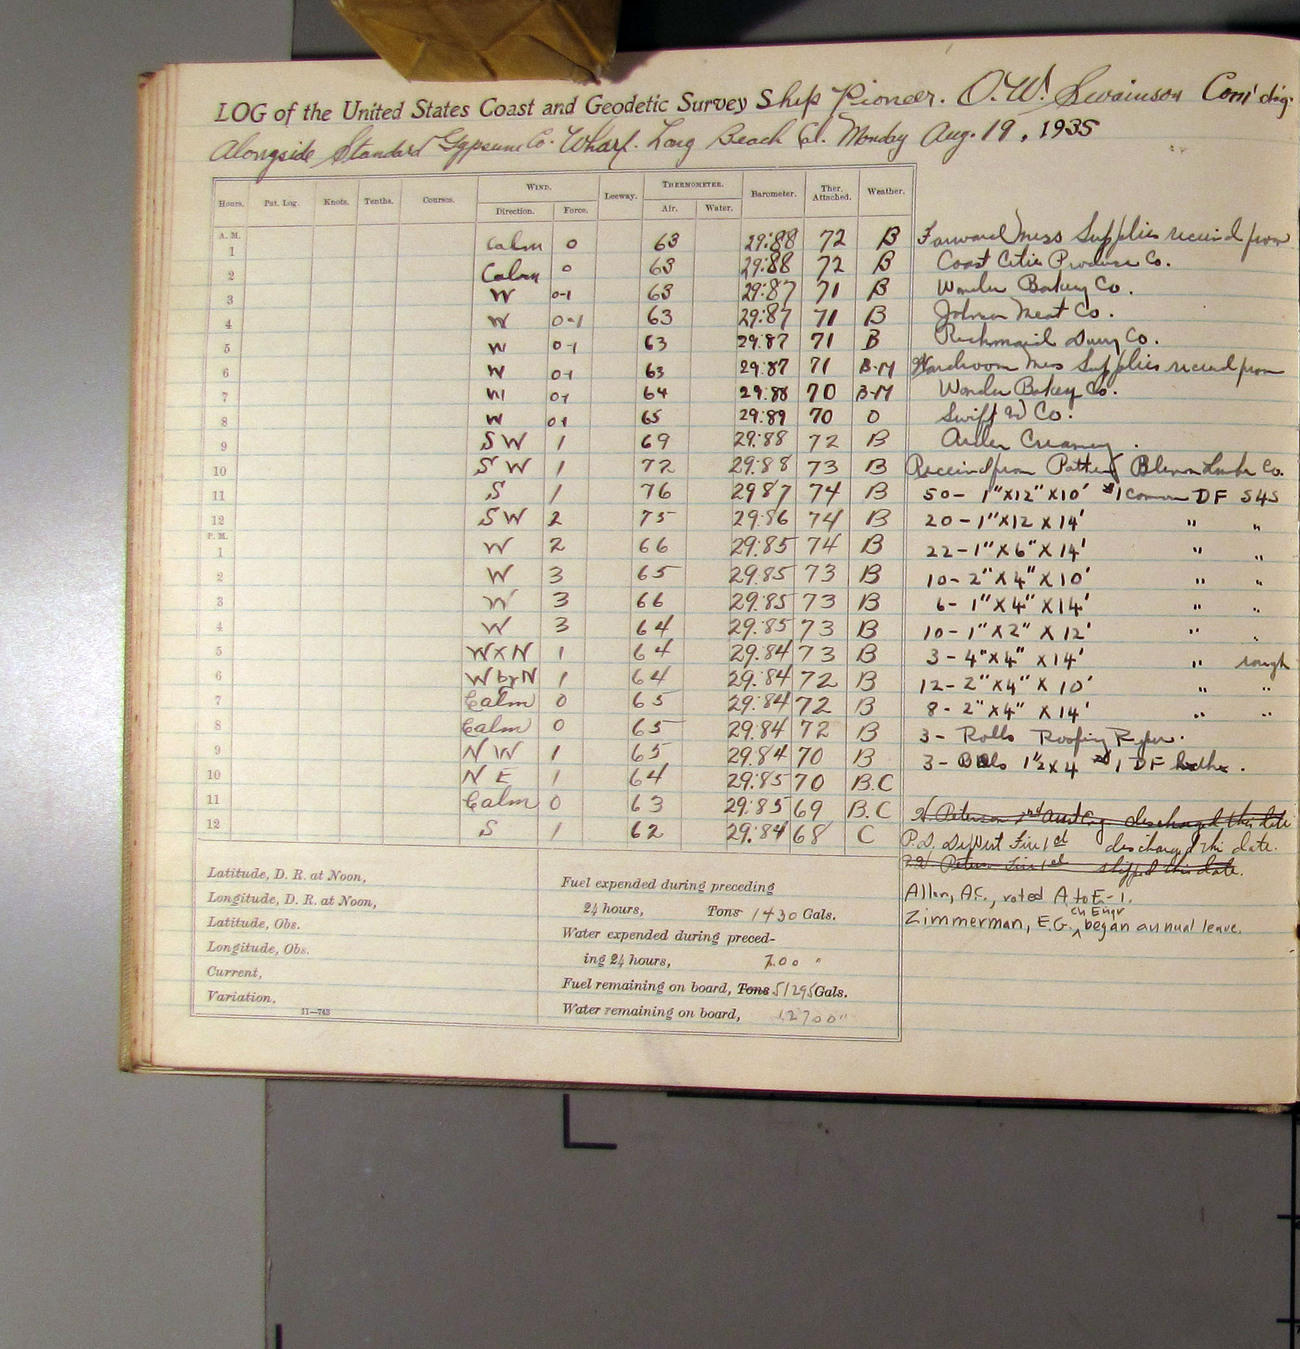 LOG of the United States Coast and Geodetic Survey Ship Pioneer. O.W. Swainson Com'dig.
Alongside Standard Gypsum Co. Wharf. Long Beach Cal. Monday Aug. 19, 1935
Hours. Pat. Log. Knots. Tenths. Courses. WIND. Direction. Force. Leeway. THERMOMETER. Air. Water. Barometer. Ther. Attached. Weather.
A. M.
1 Calm 0 63 29.88 72 B Forward Mess Supplies received from
2 Calm 0 63 29.88 72 B Coast Cities Produce Co.
3 W 0-1 63 29.87 71 B Wonder Bakery Co.
4 W 0-1 63 29.87 71 B Johnson Meat Co.
5 W 0-1 63 29.87 71 B Co.
6 W 0-1 63 29.87 71 B-M Wardroom Mess Supplies received from
7 W 0-1 64 29.88 70 B-M Wonder Bakery Co.
8 W 0-1 65 29.89 70 O Swift & Co.
9 SW 1 69 29.88 72 B Creamery.
10 SW 1 72 29.88 73 B Received from Patten Co.
11 S 1 76 29 87 74 B 50 - 1"X12"X10' #1 Common DF S4S
12 SW 2 75 29.86 74 B 20 - 1"X12 X 14' " "
P. M.
1 W 2 66 29.85 74 B 22 - 1"X6"X14' " "
2 W 3 65 29.85 73 B 10 - 2"X4"X10' " "
3 W 3 66 29.85 73 B 6 - 1"X4"X14' " "
4 W 3 64 29.85 73 B 10 - 1"X2" X 12' " "
5 WXN 1 64 29.84 73 B 3 - 4"X4" X14' " rough
6 WbyN 1 64 29.84 72 B 12 - 2"X4" X 10' " "
7 Calm 0 65 29.84 72 B 8 - 2"X4" X14' " "
8 Calm 0 65 29.84 72 B 3 - Rolls Roofing Paper.
9 NW 1 65 29.84 70 B 3 - Bdls 1½x4 #1 DF .
10 NE 1 64 29.85 70 B.C
11 Calm 0 63 29.85 69 B.C Peterson discharged this date
12 S 1 62 29.84 68 C P.D. Fire 1st discharged this date.
Fire 1st shipped this date.
Allen, A.C., rated A to E-1.
Zimmerman, E.G. ch Engr began annual leave.
Latitude, D. R. at Noon,
Longitude, D. R. at Noon,
Latitude, Obs.
Longitude, Obs.
Current,
Variation,
11—743
Fuel expended during preceding
24 hours, Tons 1430 Gals.
Water expended during preced-
ing 24 hours, 700 "
Fuel remaining on board, Tons 51295 Gals.
Water remaining on board, 12700 "